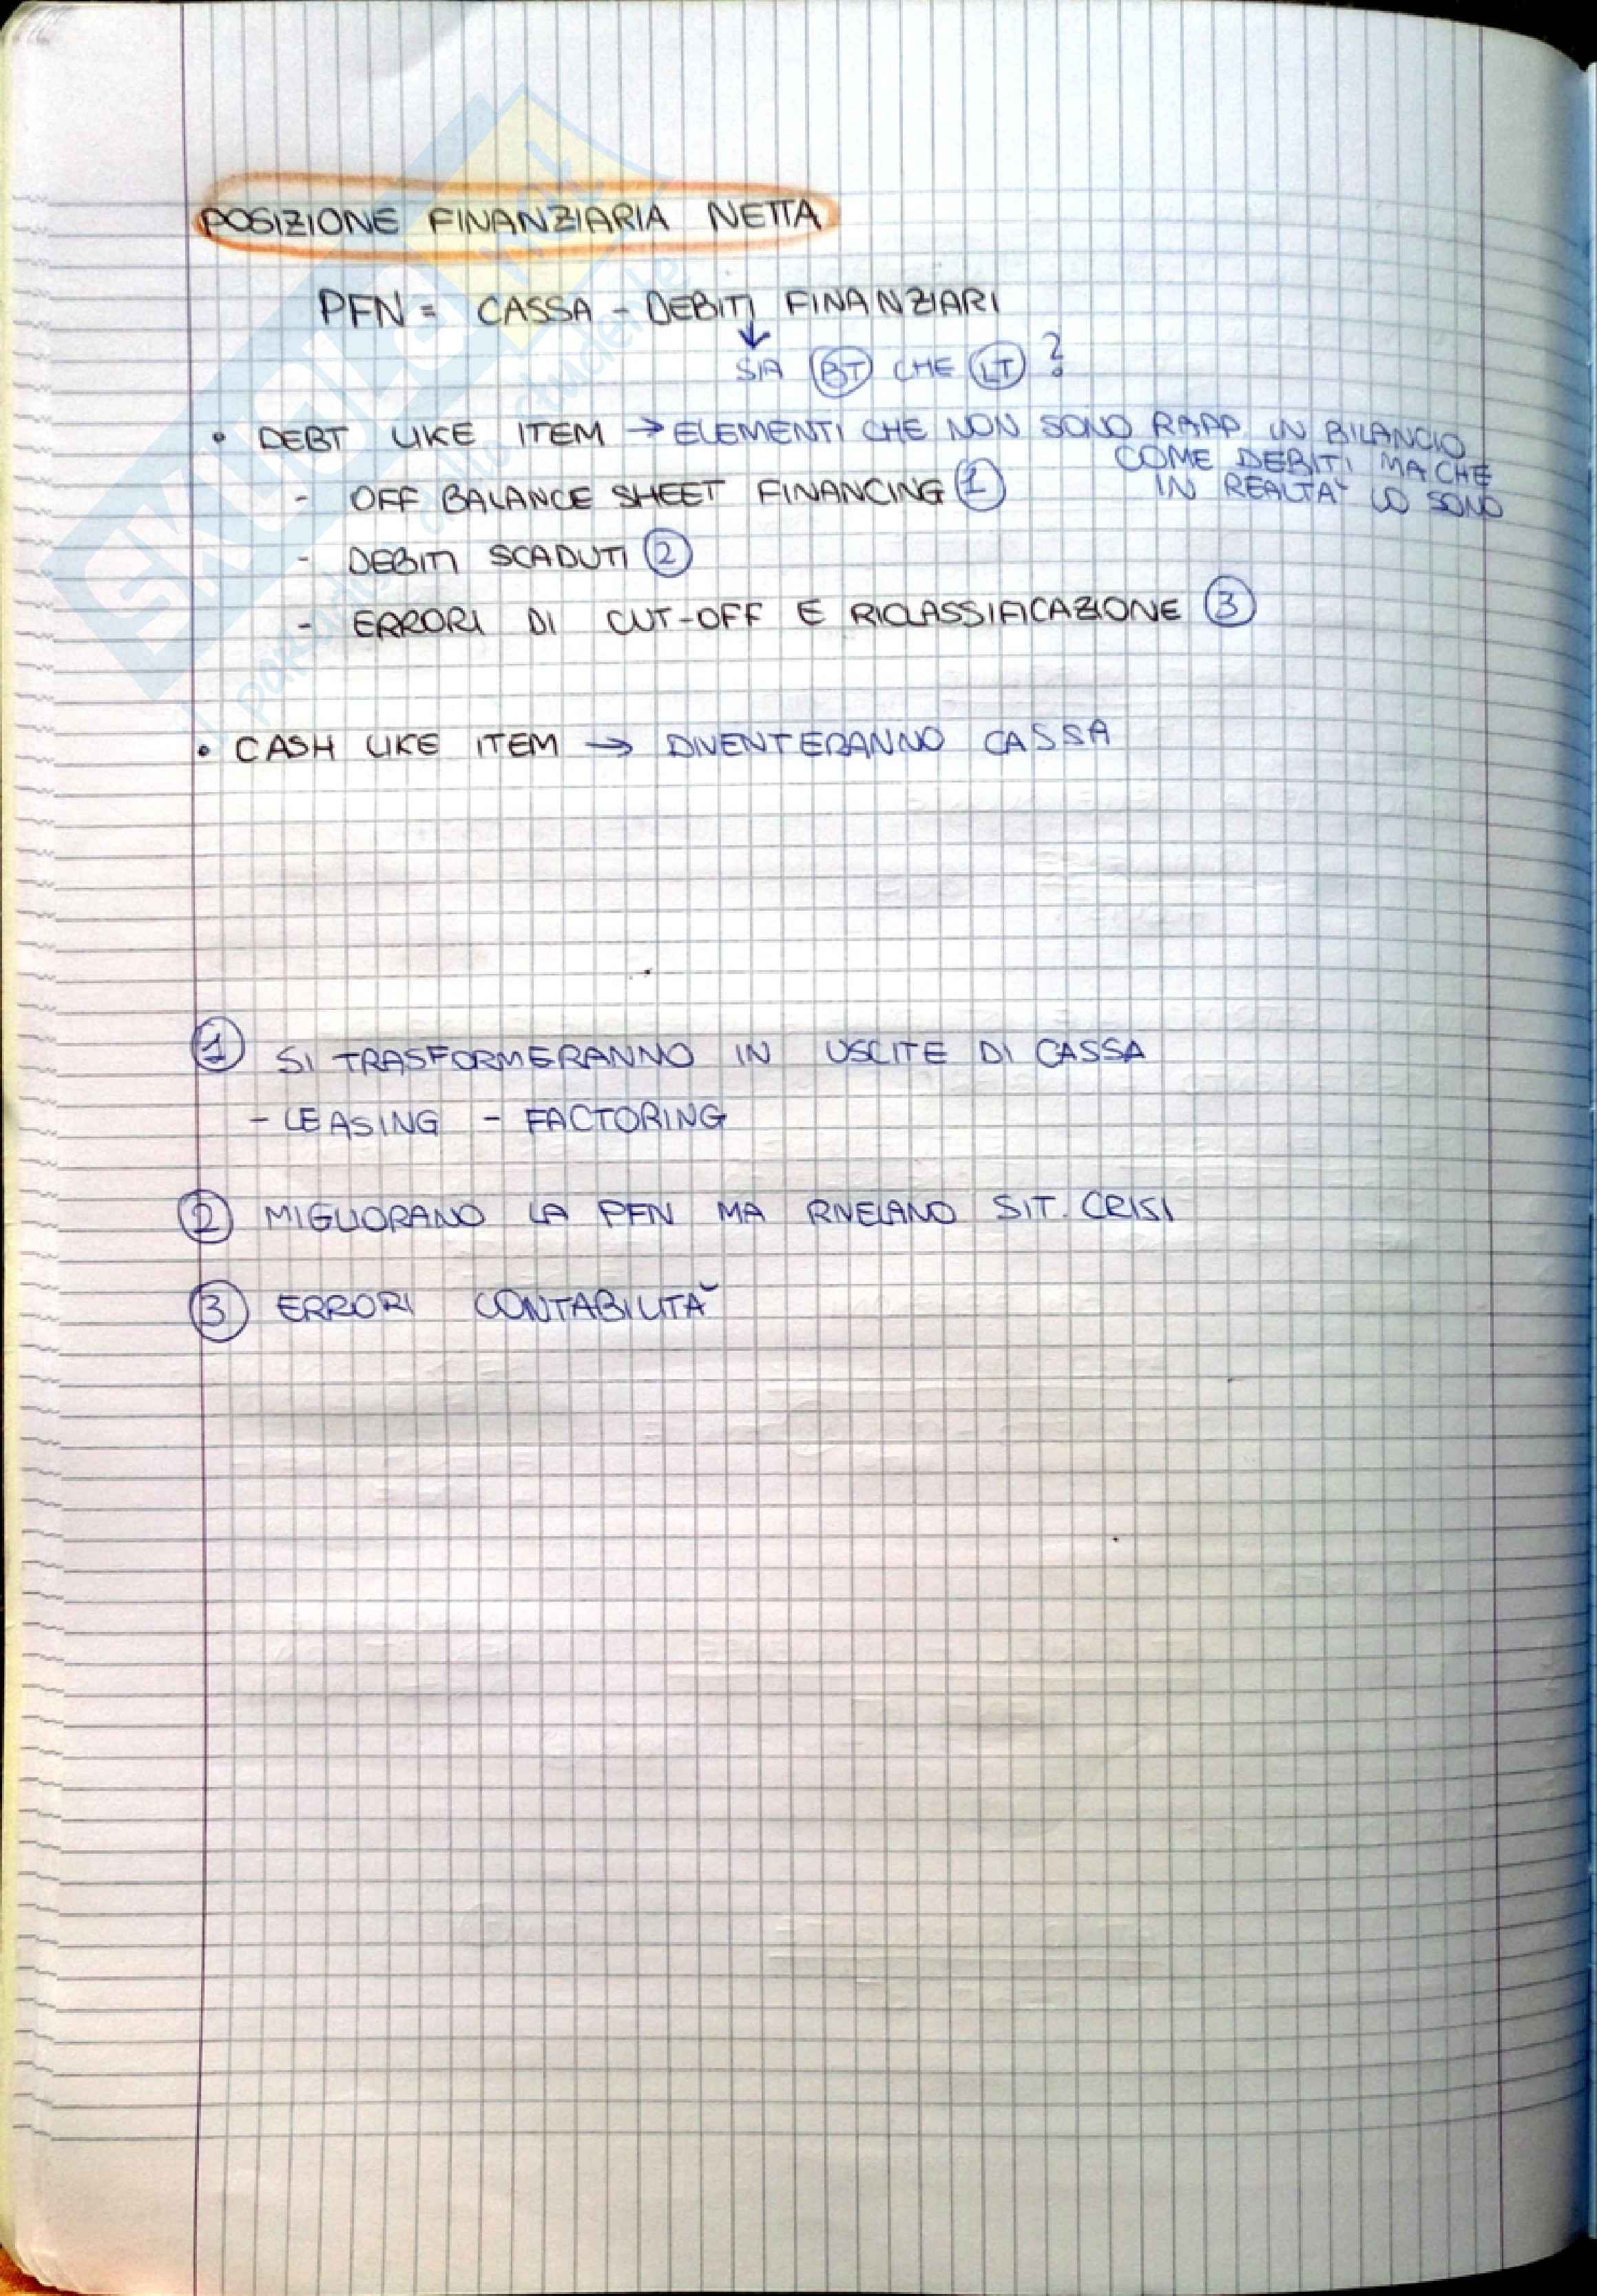 POSIZIONE FINANZIARIA NETTA
PFN = CASSA - DEBITI FINANZIARI
SIA BT CHE LT ?
• DEBT LIKE ITEM → ELEMENTI CHE NON SONO RAPP. IN BILANCIO
COME DEBITI MA CHE
IN REALTÀ LO SONO
- OFF BALANCE SHEET FINANCING 1
- DEBITI SCADUTI 2
- ERRORI DI CUT-OFF E RICLASSIFICAZIONE 3
• CASH LIKE ITEM → DIVENTERANNO CASSA
1 SI TRASFORMERANNO IN USCITE DI CASSA
- LEASING - FACTORING
2 MIGLIORANO LA PFN MA RIVELANO SIT. CRISI
3 ERRORI CONTABILITÀ
SKUOLA.net
il paradiso dello studente